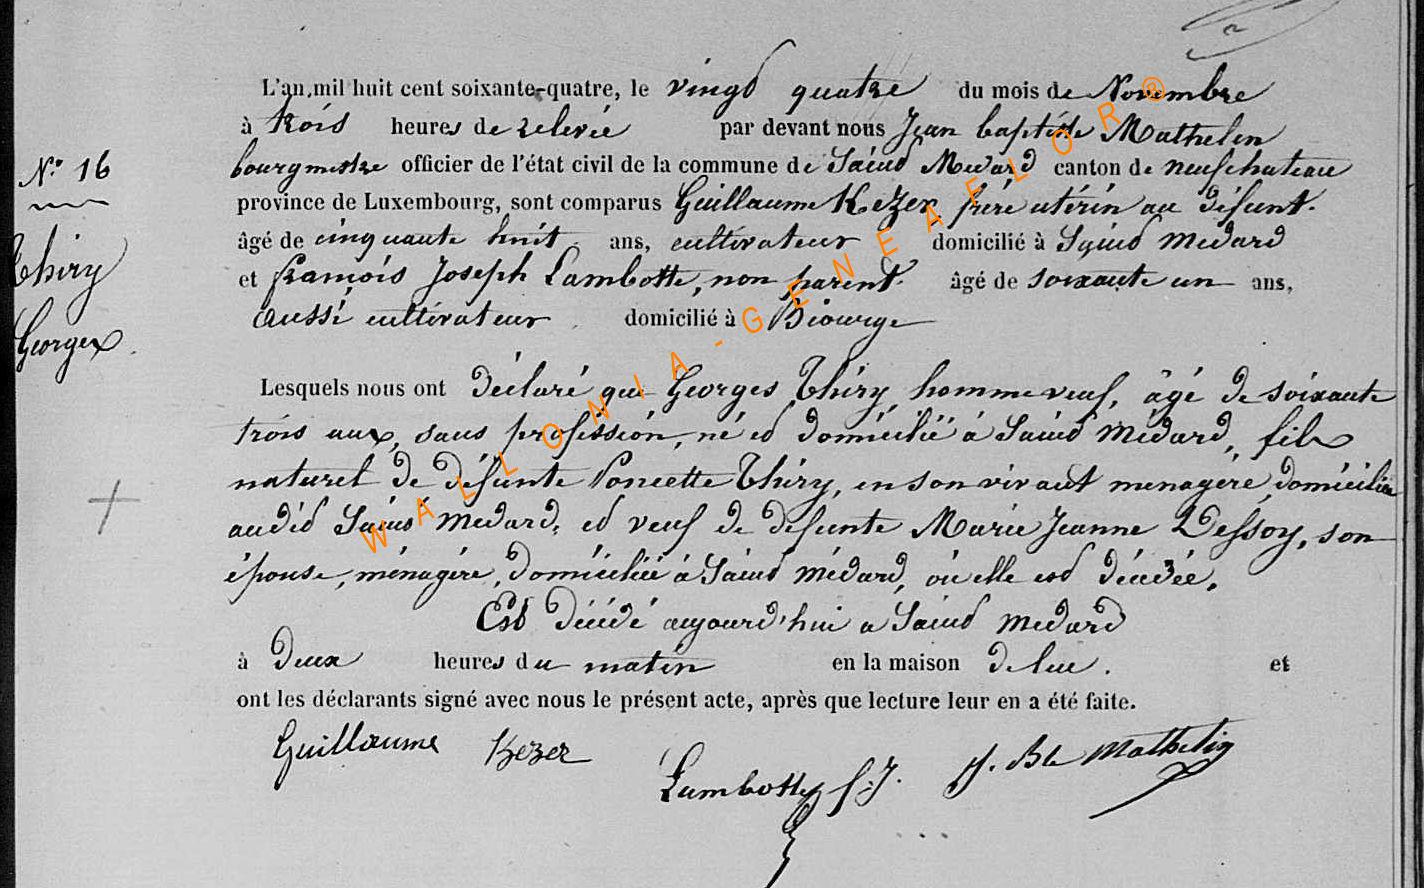 L'an mil huit cent soixante-quatre, le vingt quatre du mois de Novembre
à trois heures de relevée par devant nous Jean baptiste Mathelin
N° 16
bourgmestre officier de l'état civil de la commune de Saint Medard canton de neufchateau
province de Luxembourg, sont comparus Guillaume Kezer, frère utérin au défunt.
âgé de cinquante huit ans, cultivateur domicilié à Saint Medard
Thiry
et françois Joseph Lambotte, non parent. âgé de soixante un ans,
aussi cultivateur domicilié à Biourge
Georges.
Lesquels nous ont déclaré que Georges Thiry, homme veuf, âgé de soixante
trois ans, sans profession, né et domicilié à Saint Médard, fils
naturel de défunte Poncette Thiry, en son vivant ménagère domiciliée
audit Saint Medard, et veuf de défunte Marie Jeanne Dessoy, son
épouse, ménagère, domiciliée à Saint Médard, où elle est décédée.
Est décédé aujourd'hui a Saint Medard
à deux heures du matin en la maison de lui. et
ont les déclarants signé avec nous le présent acte, après que lecture leur en a été faite.
Guillaume Kezer
Lambotte f. J. J. Bte Mathelin
WALLONIA-GENEAFLOR®